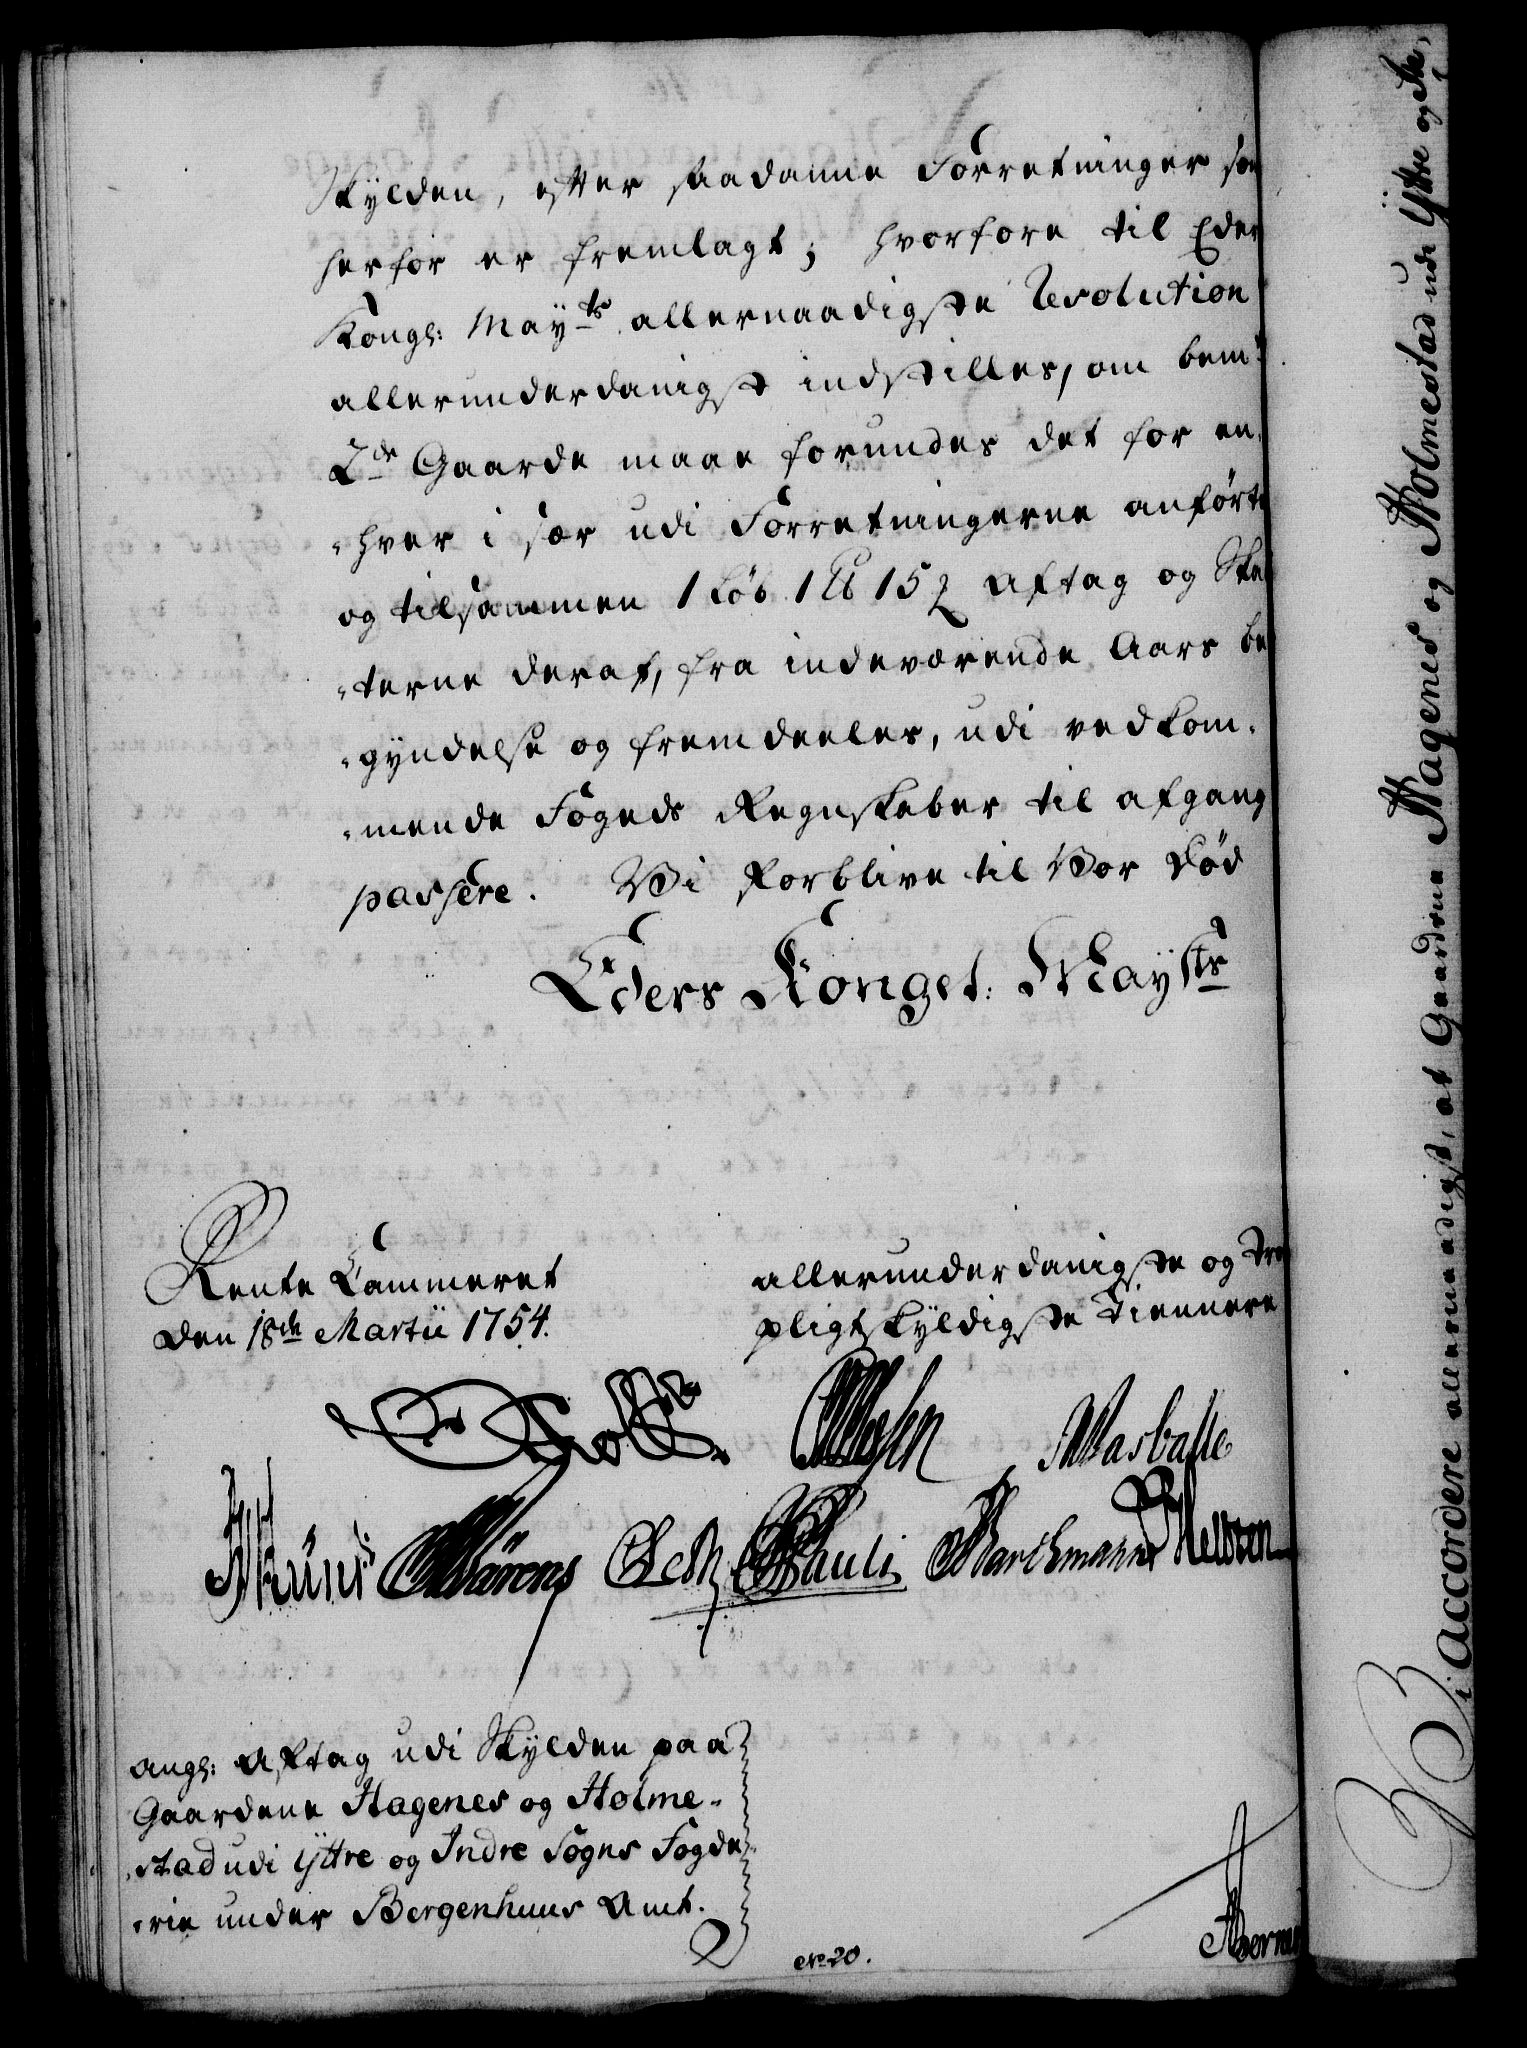 Skylden, efter saadanne Forretninger som
herfor er fremlagt; hvorfore til Eders
Kongl: Mayts allernaadigste Resolution
allerunderdanigst indstilles, om bemte
2de Gaarde maae forundes det for en-
-hver i sær udi Forretningerne anførte
og tilsammen 1 Løb 1 15 Aftag og Skat-
-terne deraf, fra indeværende Aars be-
-gyndelse og fremdeeles, udi vedkom-
-mende Fogeds Regnskaber til afgang
passere. Vi forblive til Vor Død
Eders Kongel: Maysts
Rente Cammeret
den 18de Martii 1754.
allerunderdanigste og troe
pligtskyldigste Tiennere
Holst
Wasballe
Pauli
Barthmann
angl: Aftag udi Skylden paa
Gaardene Hagenes og Holme-
-stad udi Yttre og Indre Sogns Fogde-
-rie under Bergenhuus Amt.
No 20.
Vi accordere allernaadigst, at Gaardene Hagenes og Holmestad udi Yttre og